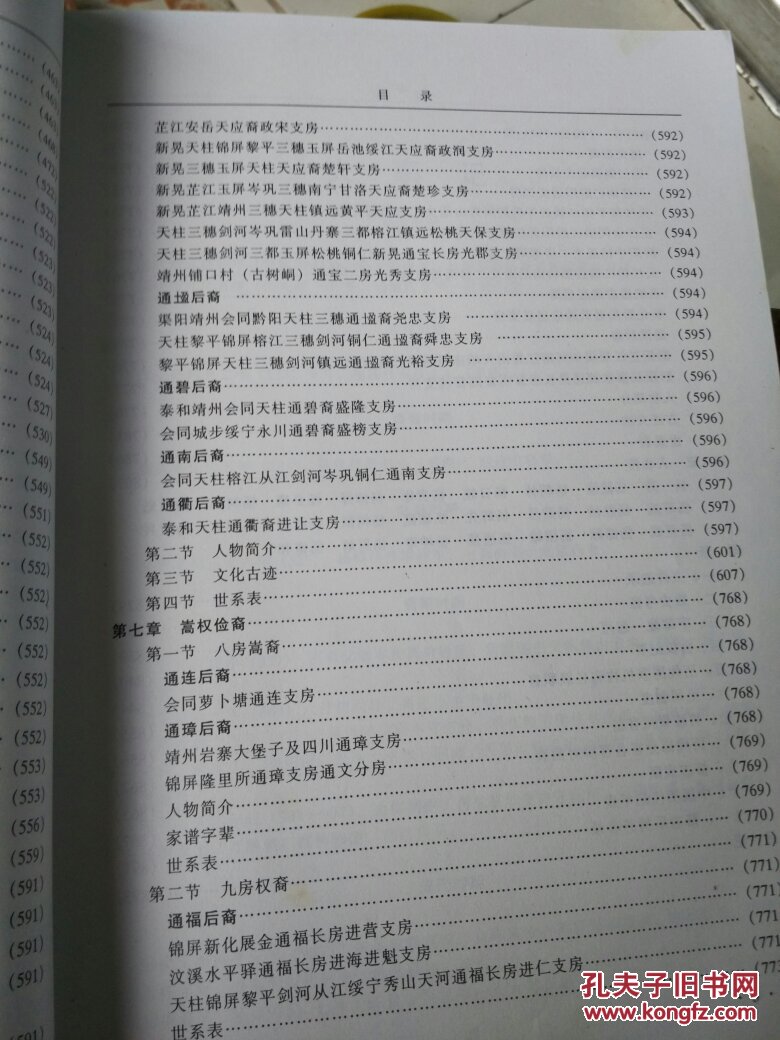 (472)
(522)
(522)
(522)
(523)
(523)
(523)
(524)
(524)
(524)
(527)
(530)
(549)
(549)
(551)
(552)
(552)
(552)
(552)
(552)
(552)
(552)
(552)
(553)
(553)
(556)
(559)
(591)
(591)
(591)
(591)
(591)
目 录
芷江安岳天应裔政宋支房……(592)
新晃天柱锦屏黎平三穗玉屏岳池绥江天应裔政润支房……(592)
新晃三穗玉屏天柱天应裔楚轩支房……(592)
新晃芷江玉屏岑巩三穗南宁甘洛天应裔楚珍支房……(592)
新晃芷江靖州三穗天柱镇远黄平天应支房……(593)
天柱三穗剑河岑巩雷山丹寨三都榕江镇远松桃天保支房……(594)
天柱三穗剑河三都玉屏松桃铜仁新晃通宝长房光郡支房……(594)
靖州铺口村（古树峒）通宝二房光秀支房……(594)
通塭后裔……(594)
渠阳靖州会同黔阳天柱三穗通塭裔尧忠支房……(594)
天柱黎平锦屏榕江三穗剑河铜仁通塭裔舜忠支房……(595)
黎平锦屏天柱三穗剑河镇远通塭裔光裕支房……(595)
通碧后裔……(596)
泰和靖州会同天柱通碧裔盛隆支房……(596)
会同城步绥宁永川通碧裔盛榜支房……(596)
通南后裔……(596)
会同天柱榕江从江剑河岑巩铜仁通南支房……(596)
通衢后裔……(597)
泰和天柱通衢裔进让支房……(597)
第二节 人物简介……(597)
第三节 文化古迹……(601)
第四节 世系表……(607)
第七章 嵩权俭裔……(768)
第一节 八房嵩裔……(768)
通连后裔……(768)
会同萝卜塘通连支房……(768)
通璋后裔……(768)
靖州岩寨大堡子及四川通璋支房……(768)
锦屏隆里所通璋支房通文分房……(769)
人物简介……(769)
家谱字辈……(769)
世系表……(770)
第二节 九房权裔……(771)
通福后裔……(771)
锦屏新化展金通福长房进营支房……(771)
汶溪水平驿通福长房进海进魁支房……(771)
天柱锦屏黎平剑河从江绥宁秀山天河通福长房进仁支房……(771
世系表……
孔夫子旧书网
www.kongfz.com